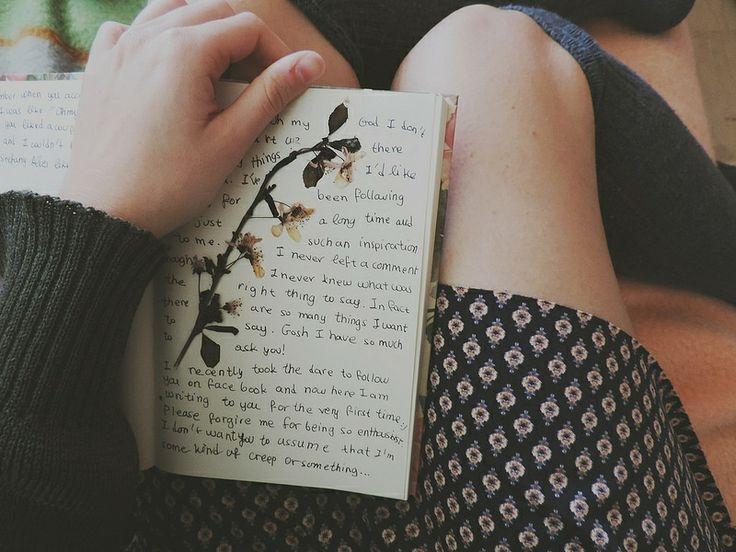 mber when you acc
I was like "Oh my
you liked a
and I couldn't
like
my God I don't
there
things I'd like
I've been following
for a long time and
just such an inspiration
to me. I never left a comment
I never knew what was
the right thing to say. In fact
there are so many things I want
to say. Gosh I have so much
to ask you!
I recently took the dare to follow
you on face book and now here I am
writing to you for the very first time :)
Please forgive me for being so enthusiastic
I don't want you to assume that I'm
some kind of creep or something...